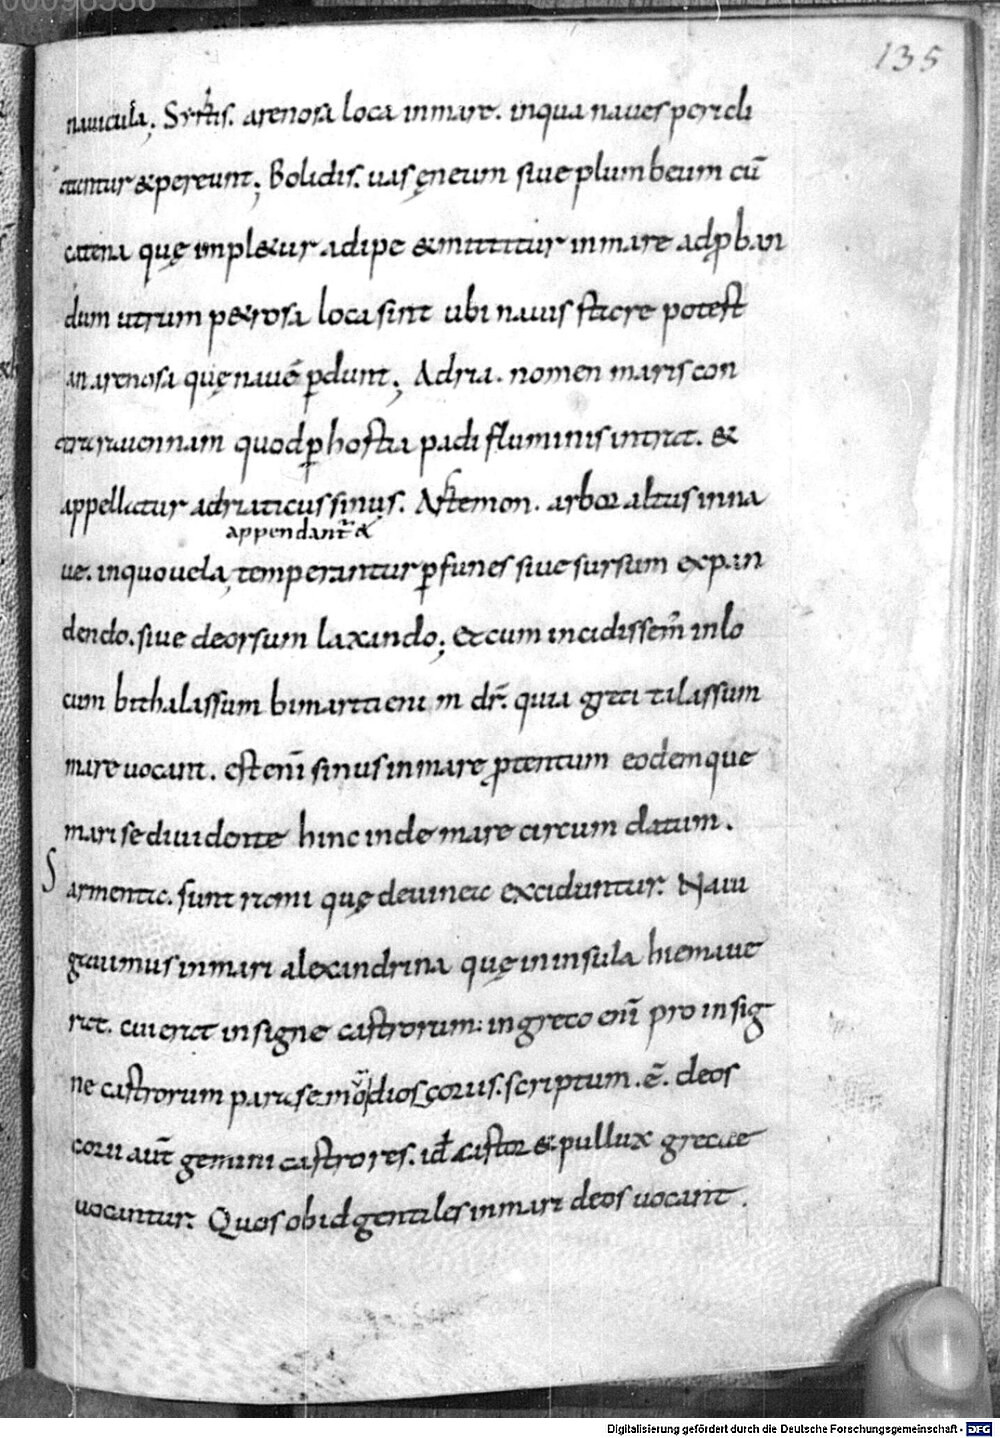 00096536
135
nauicula; Syrtis. arenosa loca inmare. inqua naues pericli
tantur &pereunt; Bolidis. uas ęneum siue plumbeum cū
catena quę impl&ur adipe &mittitur inmare adꝓban
dum utrum p&rosa loca sint ubi nauis stare potest
an arenosa quę nauē ꝑdunt; Adria. nomen maris con
tra rauennam quod ꝑ hostia padi fluminis intrat. &
appellatur adriaticus sinus. Artemon. arbor altus inna
appendant̄ &
ue. inquo uela, temperantur ꝑ funes siue sursum expan
dendo. siue deorsum laxando; Et cum incidissem̄ inlo
cum bithalassum bimaritieni in dr̄. quia greci talassum
mare uocant. est enī sinus inmare ꝓtentum eodemque
mari se diuidente hinc inde mare circum datum.
S
armentа. sunt rami quę deuinea exciduntur. Naui
gauimus inmari alexandrina quę ininsula hiemaue
rat. cui erat insigne castrorum: ingreco enī pro insig
ne castrorum
dios scriptum. ē. deos
aut̄ gemini castrores. id castor & pullux grecae
uocantur. Quos ob id gentiles inmari deos uocant.
Digitalisierung gefördert durch die Deutsche Forschungsgemeinschaft - DFG